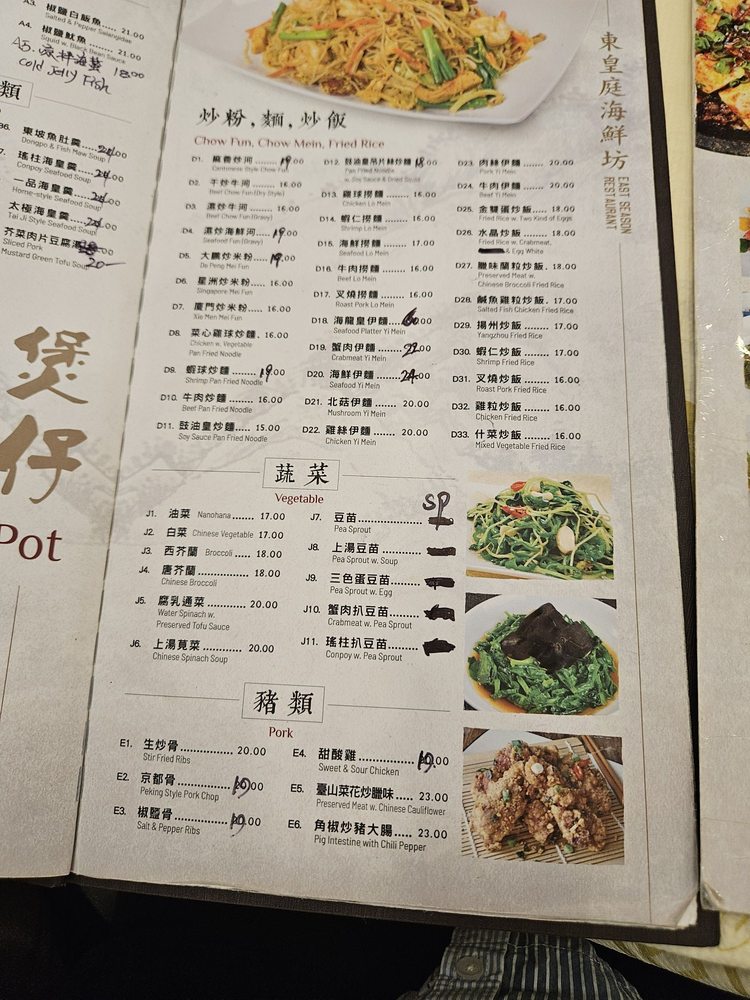 A3. 椒鹽白飯魚...... 21.00
Salted & Pepper Salangidae
A4. 椒鹽魷魚...... 21.00
Squid w. Black Bean Sauce
A5. 涼拌海蜇 18.00
cold Jelly Fish
類
東坡魚肚羹......24.00
Dongpo & Fish Maw Soup
瑤柱海皇羹......24.00
Conpoy Seafood Soup
一品海皇羹......24.00
Home-style Seafood Soup
太極海皇羹......24.00
Tai Ji Style Seafood Soup
芥菜肉片豆腐湯
20-
Sliced Pork
Mustard Green Tofu Soup
煲仔
Pot
東皇庭海鮮坊
EAST SEASON
RESTAURANT
炒粉,麵,炒飯
Chow Fun, Chow Mein, Fried Rice
D1. 麻香炒河........19.00
Cantonese Style Chow Fun
D2. 干炒牛河........ 16.00
Beef Chow Fun (Dry Style)
D3. 濕炒牛河........ 16.00
Beef Chow Fun (Gravy)
D4. 濕炒海鮮河.....19.00
Seafood Fun (Gravy)
D5. 大鵬炒米粉.....19.00
Da Peng Mei Fun
D6. 星洲炒米粉..... 16.00
Singapore Mei Fun
D7. 廈門炒米粉..... 16.00
Xie Men Mei Fun
D8. 菜心雞球炒麵. 16.00
Chicken w. Vegetable
Pan Fried Noodle
D9. 蝦球炒麵........19.00
Shrimp Pan Fried Noodle
D10. 牛肉炒麵........ 16.00
Beef Pan Fried Noodle
D11. 豉油皇炒麵..... 15.00
Soy Sauce Pan Fried Noodle
D12. 豉油皇吊片絲炒麵 18.00
Pan Fried Noodle
w. Soy Sauce & Dried Squid
D13. 雞球撈麵........ 16.00
Chicken Lo Mein
D14. 蝦仁撈麵........ 16.00
Shrimp Lo Mein
D15. 海鮮撈麵........ 17.00
Seafood Lo Mein
D16. 牛肉撈麵........ 16.00
Beef Lo Mein
D17. 叉燒撈麵........ 16.00
Roast Pork Lo Mein
D18. 海龍皇伊麵.....00
Seafood Platter Yi Mein
D19. 蟹肉伊麵........22.00
Crabmeat Yi Mein
D20. 海鮮伊麵........24.00
Seafood Yi Mein
D21. 北菇伊麵........ 20.00
Mushroom Yi Mein
D22. 雞絲伊麵........ 20.00
Chicken Yi Mein
D23. 肉絲伊麵........ 20.00
Pork Yi Mein
D24. 牛肉伊麵........ 20.00
Beef Yi Mein
D25. 金雙蛋炒飯..... 18.00
Fried Rice w. Two Kind of Eggs
D26. 水晶炒飯........ 18.00
Fried Rice w. Crabmeat,
& Egg White
D27. 臘味蘭粒炒飯. 18.00
Preserved Meat w.
Chinese Broccoli Fried Rice
D28. 鹹魚雞粒炒飯. 17.00
Salted Fish Chicken Fried Rice
D29. 揚州炒飯........ 17.00
Yangzhou Fried Rice
D30. 蝦仁炒飯........ 17.00
Shrimp Fried Rice
D31. 叉燒炒飯........ 16.00
Roast Pork Fried Rice
D32. 雞粒炒飯........ 16.00
Chicken Fried Rice
D33. 什菜炒飯........ 16.00
Mixed Vegetable Fried Rice
蔬菜
Vegetable
J1. 油菜 Nanohana....... 17.00
J2. 白菜 Chinese Vegetable 17.00
J3. 西芥蘭 Broccoli..... 18.00
J4. 唐芥蘭................ 18.00
Chinese Broccoli
J5. 腐乳通菜............ 20.00
Water Spinach w.
Preserved Tofu Sauce
J6. 上湯莧菜............ 20.00
Chinese Spinach Soup
SP
J7. 豆苗................
Pea Sprout
J8. 上湯豆苗............
Pea Sprout w. Soup
J9. 三色蛋豆苗.........
Pea Sprout w. Egg
J10. 蟹肉扒豆苗.........
Crabmeat w. Pea Sprout
J11. 瑤柱扒豆苗.........
Conpoy w. Pea Sprout
豬類
Pork
E1. 生炒骨................ 20.00
Stir Fried Ribs
E2. 京都骨................19.00
Peking Style Pork Chop
E3. 椒鹽骨................19.00
Salt & Pepper Ribs
E4. 甜酸雞................19.00
Sweet & Sour Chicken
E5. 臺山菜花炒臘味..... 23.00
Preserved Meat w. Chinese Cauliflower
E6. 角椒炒豬大腸..... 23.00
Pig Intestine with Chili Pepper